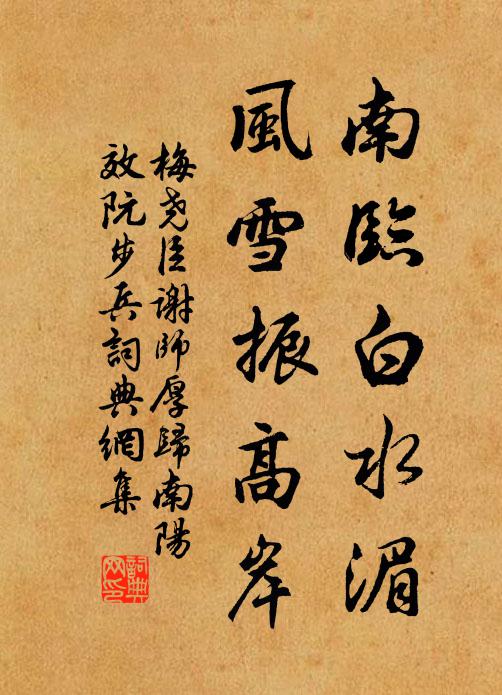 南臨白水湄
風雪振高岸
梅堯臣謝師厚歸南陽
效阮步兵詞典網集
詞典網印